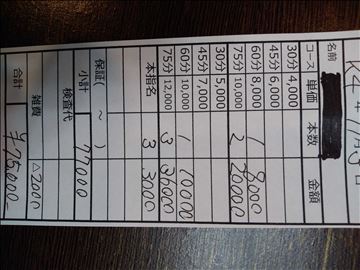 名前
コース 単価 本数 金額
30分 4,000
45分 6,000
60分 8,000 1 8000
75分 10,000 2 20000
30分 5,000
45分 7,000
60分 10,000 1 10000
75分 12,000 3 36000
本指名 3 3000
保証( ~ )
小計 77000
検査代
雑費 △2000
合計 ¥75,000-